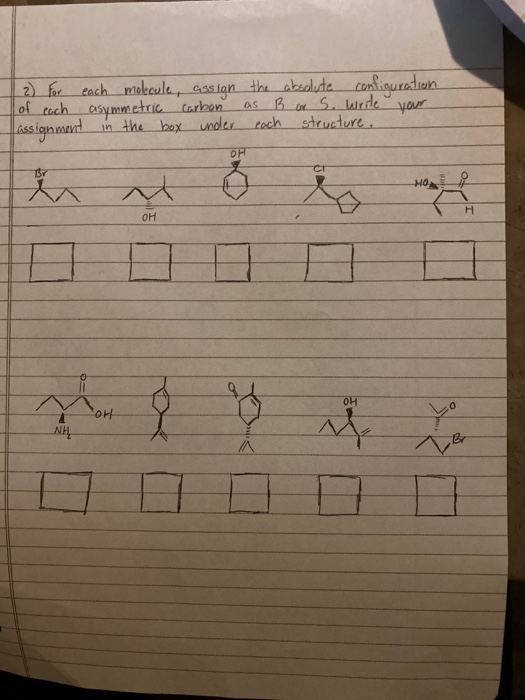 2) For each molecule, assign the absolute configuration
of each asymmetric carbon as R or S. Write your
assignment in the box under each structure.
Br
OH
OH
Cl
HO
O
H
O
OH
NH2
O
OH
O
Br